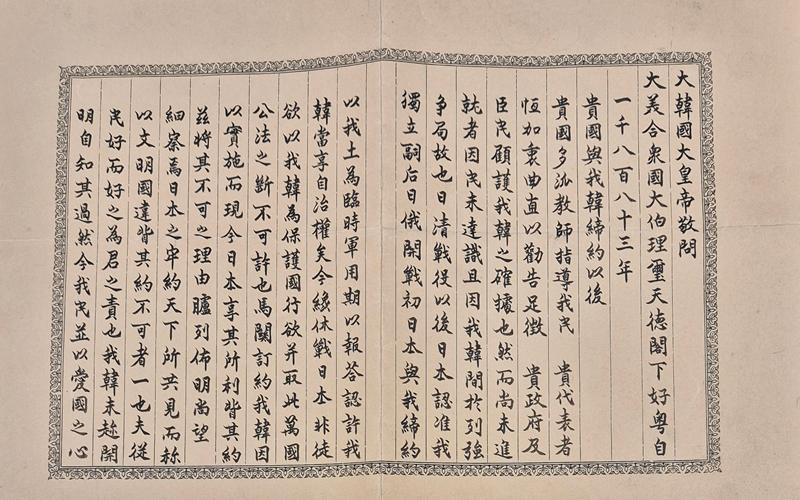 大韓國大皇帝敬問
大美合衆國大伯理璽天德閣下好粤自
一千八百八十三年
貴國與我韓締約以後
貴國多派教師指導我民 貴代表者
恆加衷曲直以勸告足徵 貴政府及
臣民顧護我韓之確據也然而尚未進
就者因民未達識且因我韓間於列強
爭局故也日清戰役以後日本認准我
獨立嗣后日俄開戰初日本與我締約
以我土為臨時軍用期以報答認許我
韓當享自治權矣今終休戰日本非徒
欲以我韓為保護國行欲并取此萬國
公法之斷不可許也馬關訂約我韓因
以實施而現今日本享其所利背其約
茲將其不可之理由臚列佈明尚望
細察焉日本之牢約天下所共見而称
以文明國違背其約不可者一也夫從
民好而好之為君之責也我韓未趁開
明自知其過然今我民並以愛國之心